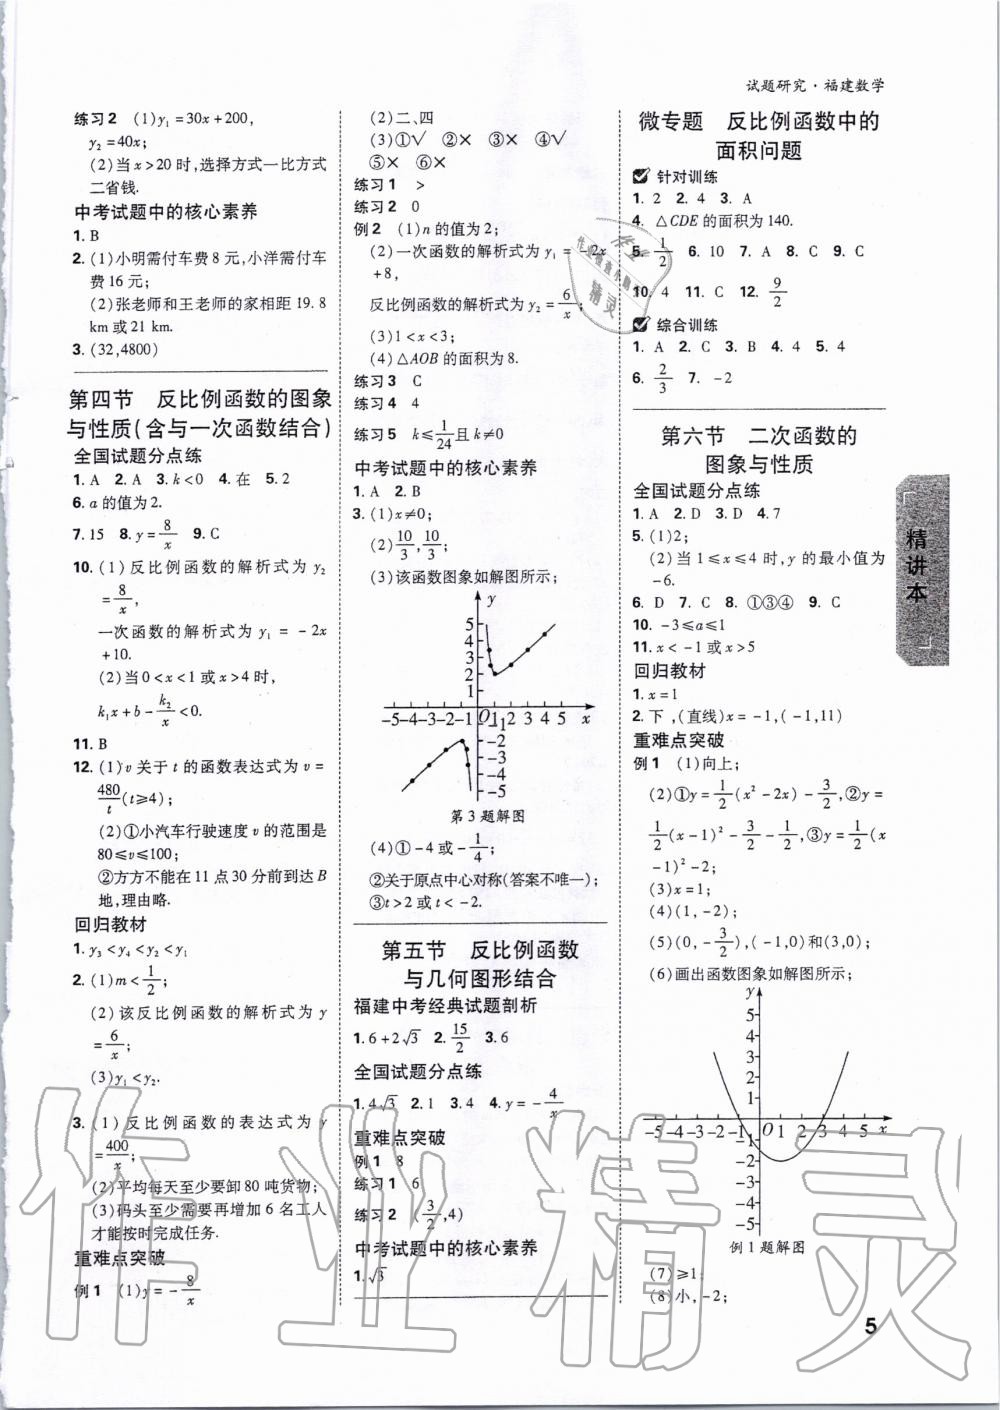 试题研究·福建数学
练习2 (1)y₁=30x+200,
y₂=40x;
(2)当x>20时,选择方式一比方式
二省钱.
中考试题中的核心素养
1. B
2. (1)小明需付车费8元,小洋需付车
费16元;
(2)张老师和王老师的家相距19.8
km或21 km.
3. (32,4800)
第四节 反比例函数的图象
与性质(含与一次函数结合)
全国试题分点练
1. A 2. A 3. k<0 4. 在 5. 2
6. a的值为2.
7. 15 8. y=8/x 9. C
10. (1)反比例函数的解析式为y₂
=8/x,
一次函数的解析式为y₁=-2x
+10.
(2)当0<x<1或x>4时,
k₁x+b-k₂/x<0.
11. B
12. (1)v关于t的函数表达式为v=
480/t(t≥4);
(2)①小汽车行驶速度v的范围是
80≤v≤100;
②方方不能在11点30分前到达B
地,理由略.
回归教材
1. y₃<y₄<y₂<y₁
2. (1)m<1/2;
(2)该反比例函数的解析式为y
=6/x;
(3)y₁<y₂.
3. (1)反比例函数的表达式为y
=400/x;
(2)平均每天至少要卸80吨货物;
(3)码头至少需要再增加6名工人
才能按时完成任务.
重难点突破
例1 (1)y=-8/x
(2)二、四
(3)①√ ②× ③× ④√
⑤× ⑥×
练习1 >
练习2 0
例2 (1)n的值为2;
(2)一次函数的解析式为y₁=-2x
+8,
反比例函数的解析式为y₂=6/x;
(3)1<x<3;
(4)△AOB的面积为8.
练习3 C
练习4 4
练习5 k≤1/24且k≠0
中考试题中的核心素养
1. A 2. B
3. (1)x≠0;
(2)10/3,10/3;
(3)该函数图象如解图所示;
y
5
4
3
2
1
-5-4-3-2-1 O 1 2 3 4 5 x
-1
-2
-3
-4
-5
第3题解图
(4)①-4或-1/4;
②关于原点中心对称(答案不唯一);
③t>2或t<-2.
第五节 反比例函数
与几何图形结合
福建中考经典试题剖析
1. 6+2√3 2. 15/2 3. 6
全国试题分点练
1. 4√3 2. 1 3. 4 4. y=-4/x
重难点突破
例1 8
练习1 6
练习2 (3/2,4)
中考试题中的核心素养
1. √3
微专题 反比例函数中的
面积问题
针对训练
1. 2 2. 4 3. A
4. △CDE的面积为140.
5. 1/2 6. 10 7. A 8. C 9. C
10. 4 11. C 12. 9/2
综合训练
1. A 2. C 3. B 4. 4 5. 4
6. 2/3 7. -2
第六节 二次函数的
图象与性质
全国试题分点练
1. A 2. D 3. D 4. 7
5. (1)2;
(2)当1≤x≤4时,y的最小值为
-6.
6. D 7. C 8. ①③④ 9. C
10. -3≤a≤1
11. x<-1或x>5
回归教材
1. x=1
2. 下,(直线)x=-1,(-1,11)
重难点突破
例1 (1)向上;
(2)①y=1/2(x²-2x)-3/2,②y=
1/2(x-1)²-3/2-1/2,③y=1/2(x
-1)²-2;
(3)x=1;
(4)(1,-2);
(5)(0,-3/2),(-1,0)和(3,0);
(6)画出函数图象如解图所示;
y
5
4
3
2
1
-5-4-3-2-1 O 1 2 3 4 5 x
-1
-2
-3
-4
-5
例1题解图
(7)≥1;
(8)小,-2;
精讲本
5
作业精灵